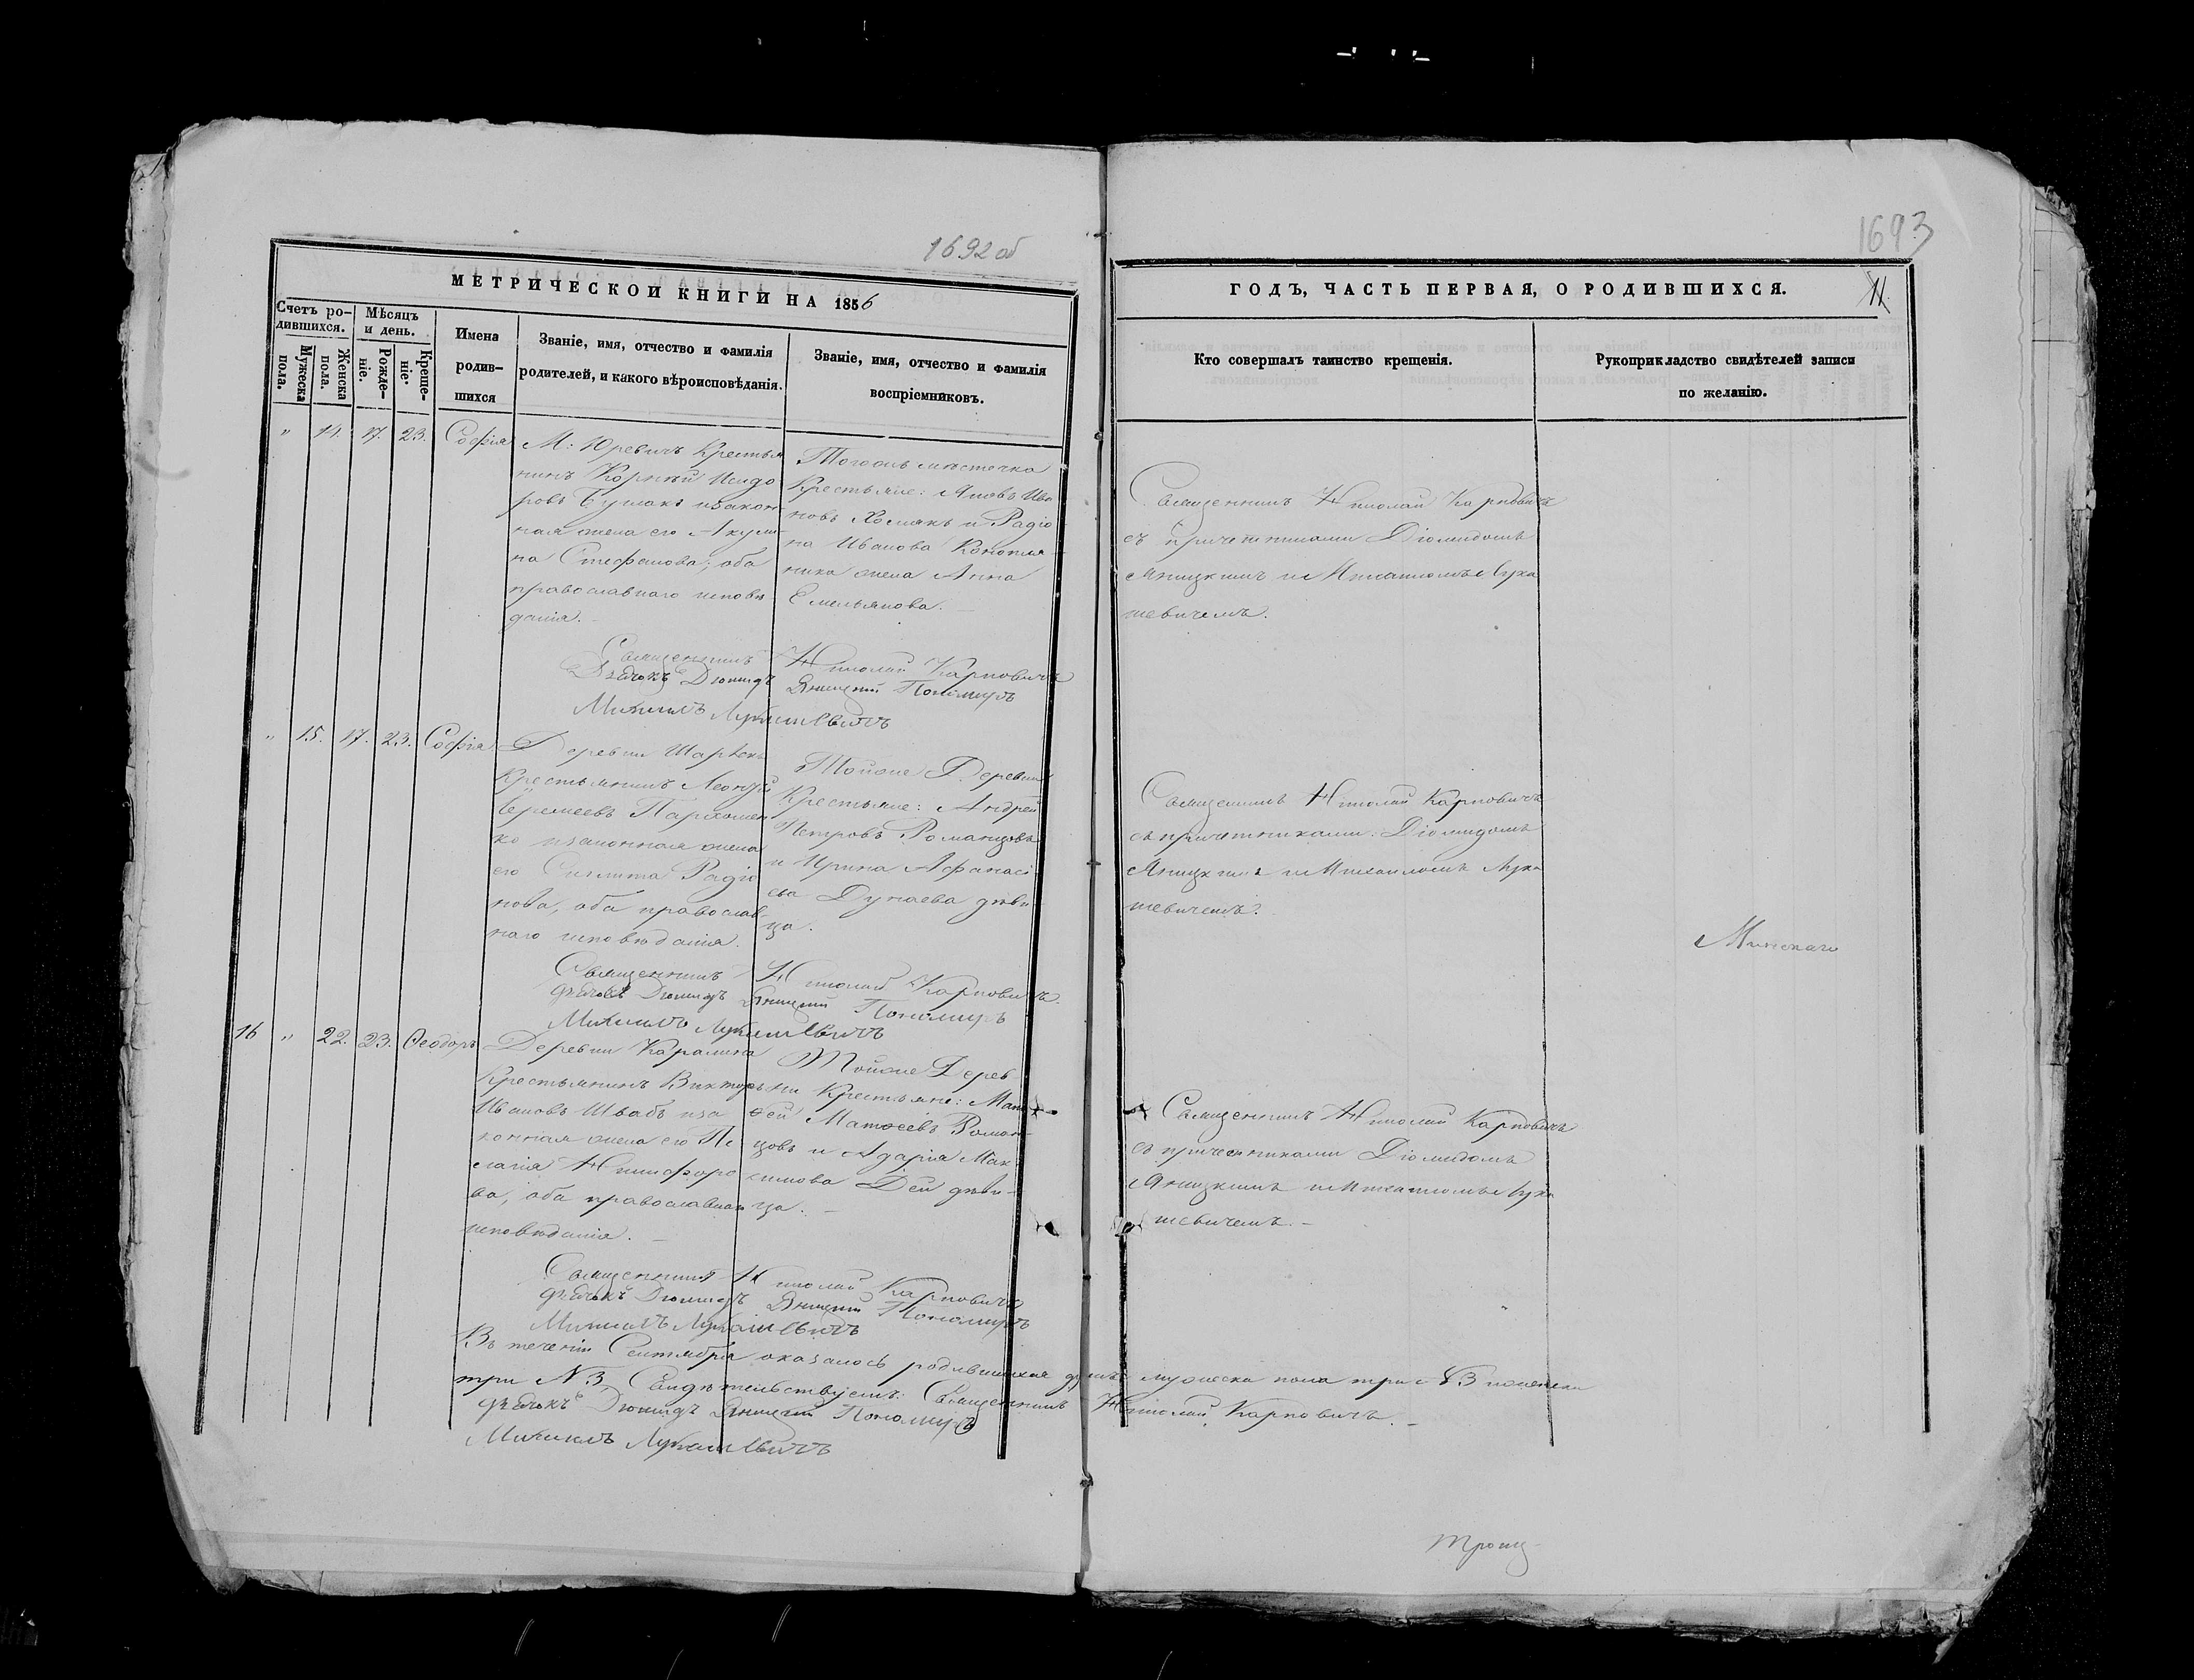 1692 об
МЕТРИЧЕСКОЙ КНИГИ НА 1856
Счетъ ро-
дившихся.
Мужеска
пола.
Женска
пола.
Мѣсяцъ
и день.
Рожде-
ніе.
Креще-
ніе.
Имена
родив-
шихся
Званіе, имя, отчество и фамилія
родителей, и какого вѣроисповѣданія.
Званіе, имя, отчество и фамилія
воспріемниковъ.
" 14. 17. 23. Софія
М: Юревичъ Крестья
нинъ Корнѣй Исидо
ровъ и закон
ная жена его Акули
на Стефанова; оба
православнаго исповѣ
данія.
Тогожъ мѣстечка
Крестьяне: Яковъ Ива
новъ Хомякъ и Радіо
на Иванова Конопля
ника жена Анна
Емельянова.
Священникъ Николай Карповичъ
Дьячокъ Діомидъ Яницкий Пономаръ
Михаилъ Лукашевичъ
" 15. 17. 23. Софія
Деревни
Крестьянинъ Леонтій
Еремеевъ Пархомен
ко и законная жена
его Радіо
нова, оба православ
наго исповѣданія.
Тойже Деревни
Крестьяне: Андрей
Петровъ Романцовъ
и Ирина Афанасі
ева Дунаева дѣви
ца.
Священникъ Николай Карповичъ.
Дьячокъ Діомидъ Яницкий Пономаръ
Михаилъ Лукашевичъ
16 " 22. 23. Ѳеодоръ
Деревни Каралина
Крестьянинъ Викторъ
Ивановъ Швабъ и за
конная жена его Пе
лагія Никифоро
ва, оба православнаго
исповѣданія.
Тойже Дерев
ни Крестьяне: Мат
ѳей Матѳеевъ Роман
цовъ и Дарія Мак
симова Дей дѣви-
ца.
Священникъ Николай Карповичъ
Дьячокъ Діомидъ Яницкий Пономаръ
Михаилъ Лукашевичъ
Въ теченіи Сентября оказалось родившихся душъ мужеска пола три №3 и женска
три №3. Свидѣтельствуемъ: Священникъ Николай Карповичъ.
Дьячокъ Діомидъ Яницкий Пономаръ
Михаилъ Лукашевичъ
1693
ГОДЪ, ЧАСТЬ ПЕРВАЯ, О РОДИВШИХСЯ.
11.
Кто совершалъ таинство крещенія.
Рукоприкладство свидѣтелей записи
по желанію.
Священникъ Николай Карповичъ
съ причетниками Діомидомъ
Яницкимъ и Михаиломъ Лука
шевичемъ.
Священникъ Николай Карповичъ
съ причетниками: Діомидомъ
Яницкимъ и Михаиломъ Лука
шевичемъ.
Минскаго
Священникъ Николай Карповичъ
съ причетниками Діомидомъ
Яницкимъ и Михаиломъ Лука
шевичемъ.
Троиц